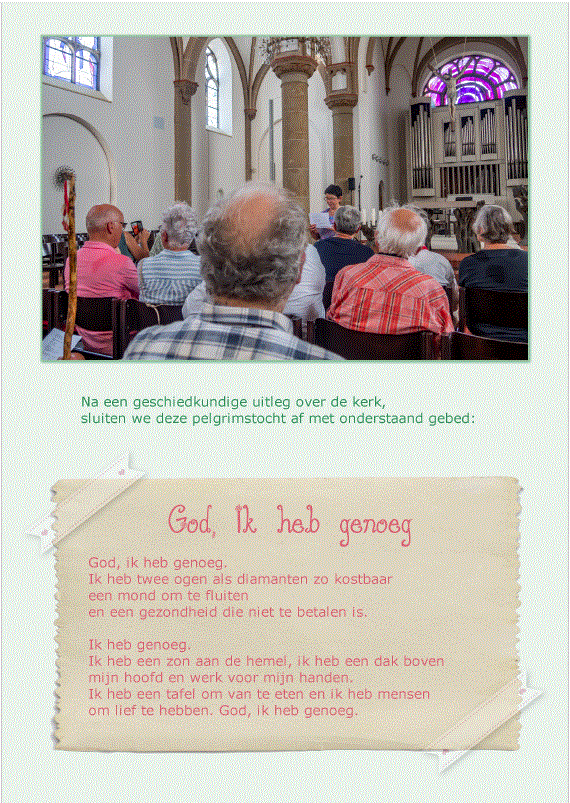 Na een geschiedkundige uitleg over de kerk,
sluiten we deze pelgrimstocht af met onderstaand gebed:
God, ik heb genoeg
God, ik heb genoeg.
Ik heb twee ogen als diamanten zo kostbaar
een mond om te fluiten
en een gezondheid die niet te betalen is.
Ik heb genoeg.
Ik heb een zon aan de hemel, ik heb een dak boven
mijn hoofd en werk voor mijn handen.
Ik heb een tafel om van te eten en ik heb mensen
om lief te hebben. God, ik heb genoeg.